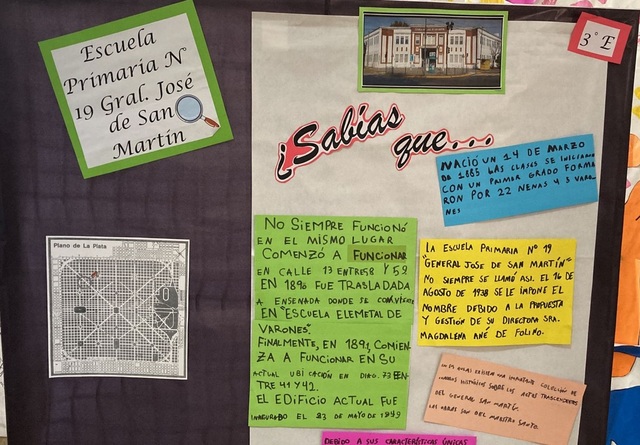 Escuela
Primaria N°
19 Gral. José
de San
Martín
3° E
¿Sabías
que...
NACIÓ UN 14 DE MARZO
DE 1885 LAS CLASES SE INICIARON
CON UN PRIMER GRADO FORMA
RON POR 22 NENAS Y 3 VARO
NES
NO SIEMPRE FUNCIONÓ
EN EL MISMO LUGAR
COMENZÓ A FUNCIONAR
EN CALLE 13 ENTRE 58 Y 59
EN 1890 FUE TRASLADADA
A ENSENADA DONDE SE
EN "ESCUELA ELEMETAL DE
VARONES".
FINALMENTE, EN 1891, COMIEN
ZA A FUNCIONAR EN SU
ACTUAL UBICACIÓN EN DIAG. 73 EN-
TRE 41 Y 42.
EL EDIFICIO ACTUAL FUE
INAUGURADO EL 23 DE MAYO DE 1949
LA ESCUELA PRIMARIA N° 19
"GENERAL JOSE DE SAN MARTÍN"
NO SIEMPRE SE LLAMÓ ASI. EL 16 DE
AGOSTO DE 1938 SE LE IMPONE EL
NOMBRE DEBIDO A LA PROPUESTA
Y GESTIÓN DE SU DIRECTORA SRA.
MAGDALENA ANÉ DE FOLINO.
Plano de La Plata
UNA IMPORTANTE COLECCIÓN DE
HISTÓRICOS SOBRE LOS ACTOS TRASCENDENTES
DEL GENERAL SAN MARTÍN.
LAS OBRAS SON DEL MAESTRO SANTO.
DEBIDO A SUS CARACTERÍSTICAS ÚNICAS